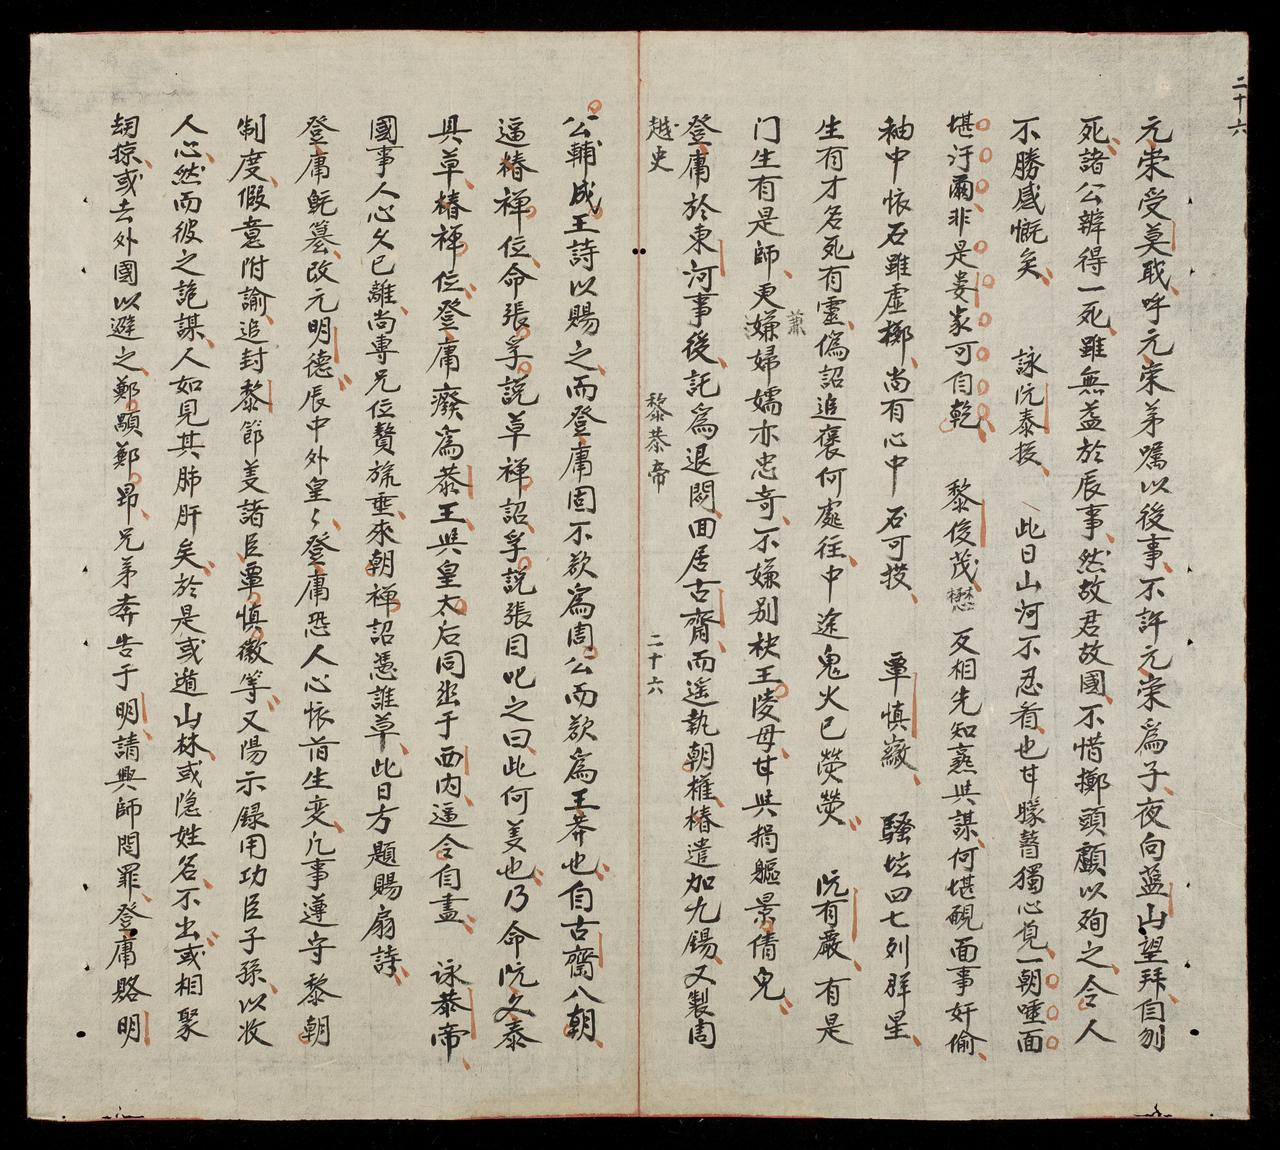 二十六
元荣受莫戢呼元荣弟嘱以後事不許元荣為子夜向藍山望拜自刎
死諸公辨得一死雖無益於辰事然故君故國不惜擲頭顱以殉之令人
不勝感慨矣 詠阮泰拔 此日山河不忍看也甘矇瞽獨心寬一朝唾面
堪汙爾非是婁家可自乾 黎俊茂懋 反相先知爇其謀何堪覥面事奸偷
袖中怀石雖虛擲尚有心中石可投 覃慎徽 騷坛四七列羣星
生有才名死有靈偽詔追褒何處往中途鬼火已熒熒 阮有嚴 有是
门生有是師更嫌婦嬬亦忠奇不嫌别袂王陵母甘共捐軀景倩兒
兼
登庸於東河事後託為退閒回居古齋而遥執朝權椿遣加九錫又製周
越史 黎恭帝 二十六
公輔成王詩以賜之而登庸固不欲為周公而欲為王莽也自古齋入朝
逼椿禅位命張孚説草禅詔孚説張目叱之曰此何義也乃命阮文泰
具草椿禅位登庸廢為恭王與皇太后同坐于西内逼令自盡 詠恭帝
國事人心久已離尚專兄位贅旒垂來朝禅詔憑誰草此日方題賜扇詩
登庸既篡改元明德辰中外皇々登庸恐人心怀旧生变凡事遵守黎朝
制度假意附諭追封黎節義諸臣覃慎徽等又陽示録用功臣子孫以收
人心然而彼之詭謀人如見其肺肝矣於是或遁山林或隐姓名不出或相聚
刼掠或去外國以避之鄭顒鄭昂兄弟奔告于明請興師問罪登庸賂明